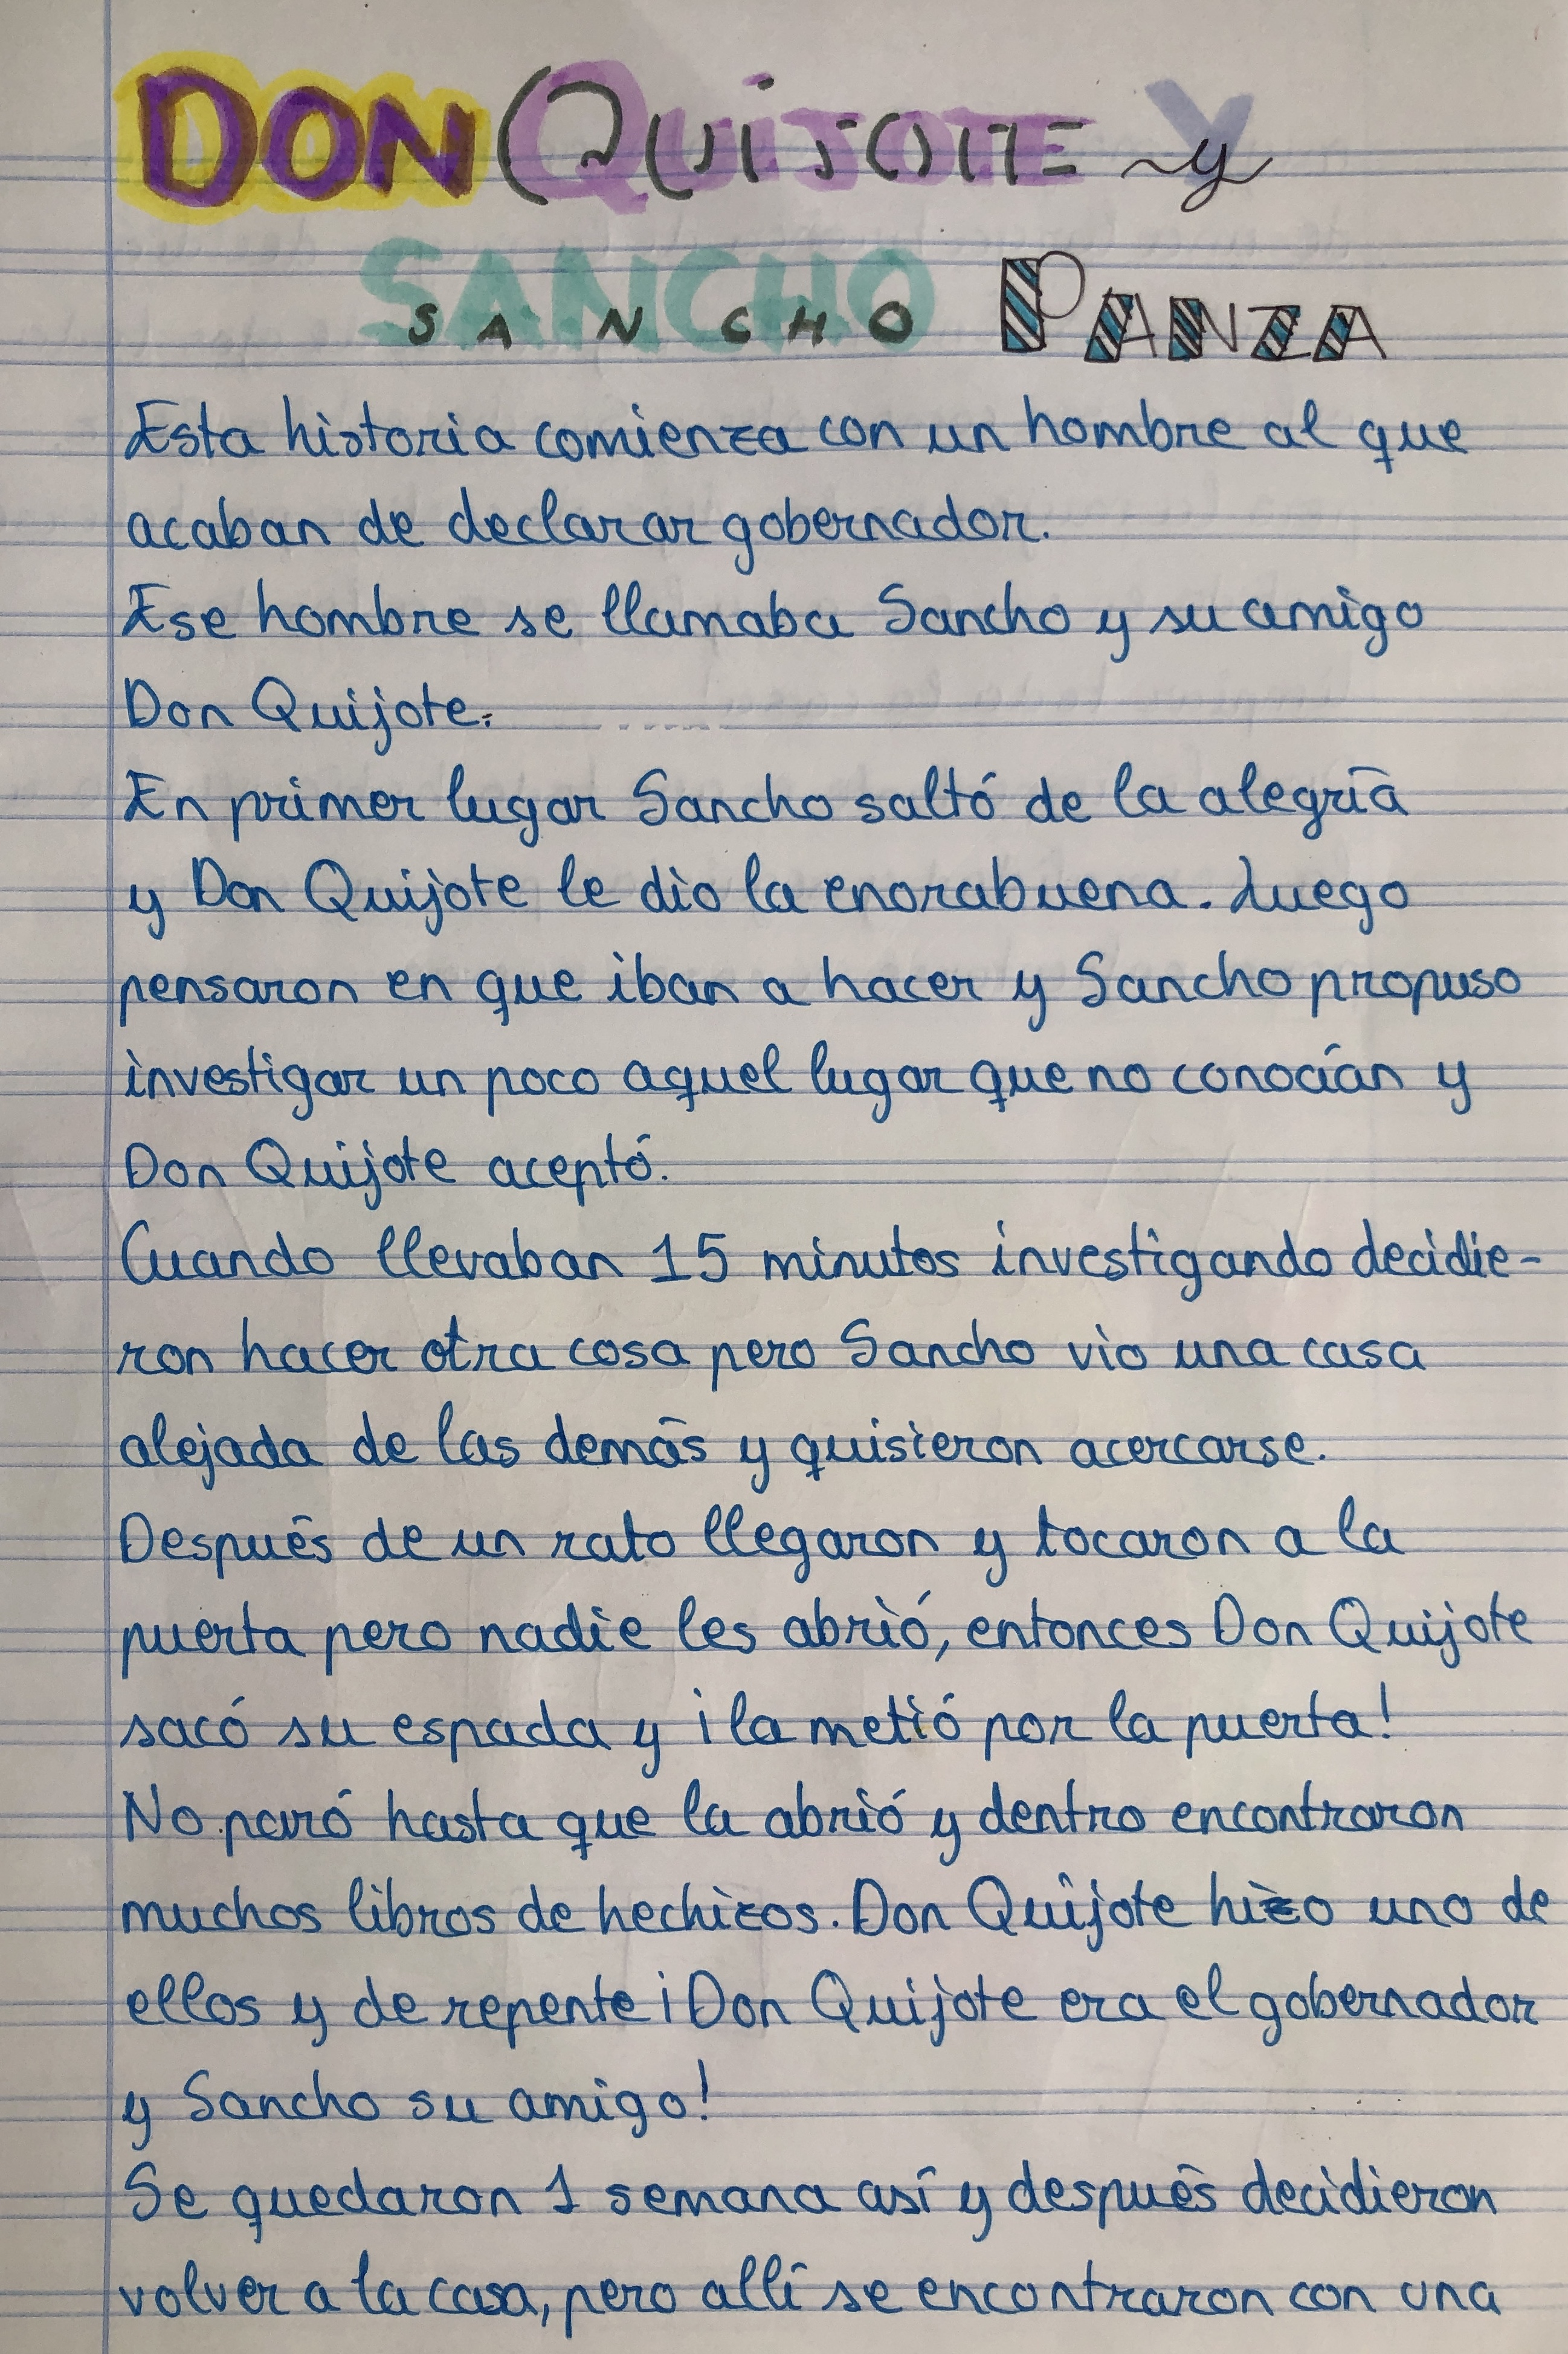 DON QUIJOTE y
SANCHO PANZA
Esta historia comienza con un hombre al que
acaban de declarar gobernador.
Ese hombre se llamaba Sancho y su amigo
Don Quijote.
En primer lugar Sancho saltó de la alegría
y Don Quijote le dio la enorabuena. Luego
pensaron en que iban a hacer y Sancho propuso
investigar un poco aquel lugar que no conocían y
Don Quijote aceptó.
Cuando llevaban 15 minutos investigando decidie-
ron hacer otra cosa pero Sancho vio una casa
alejada de las demás y quisieron acercarse.
Después de un rato llegaron y tocaron a la
puerta pero nadie les abrió, entonces Don Quijote
sacó su espada y ¡la metió por la puerta!
No paró hasta que la abrió y dentro encontraron
muchos libros de hechizos. Don Quijote hizo uno de
ellos y de repente ¡Don Quijote era el gobernador
y Sancho su amigo!
Se quedaron 1 semana así y después decidieron
volver a la casa, pero allí se encontraron con una